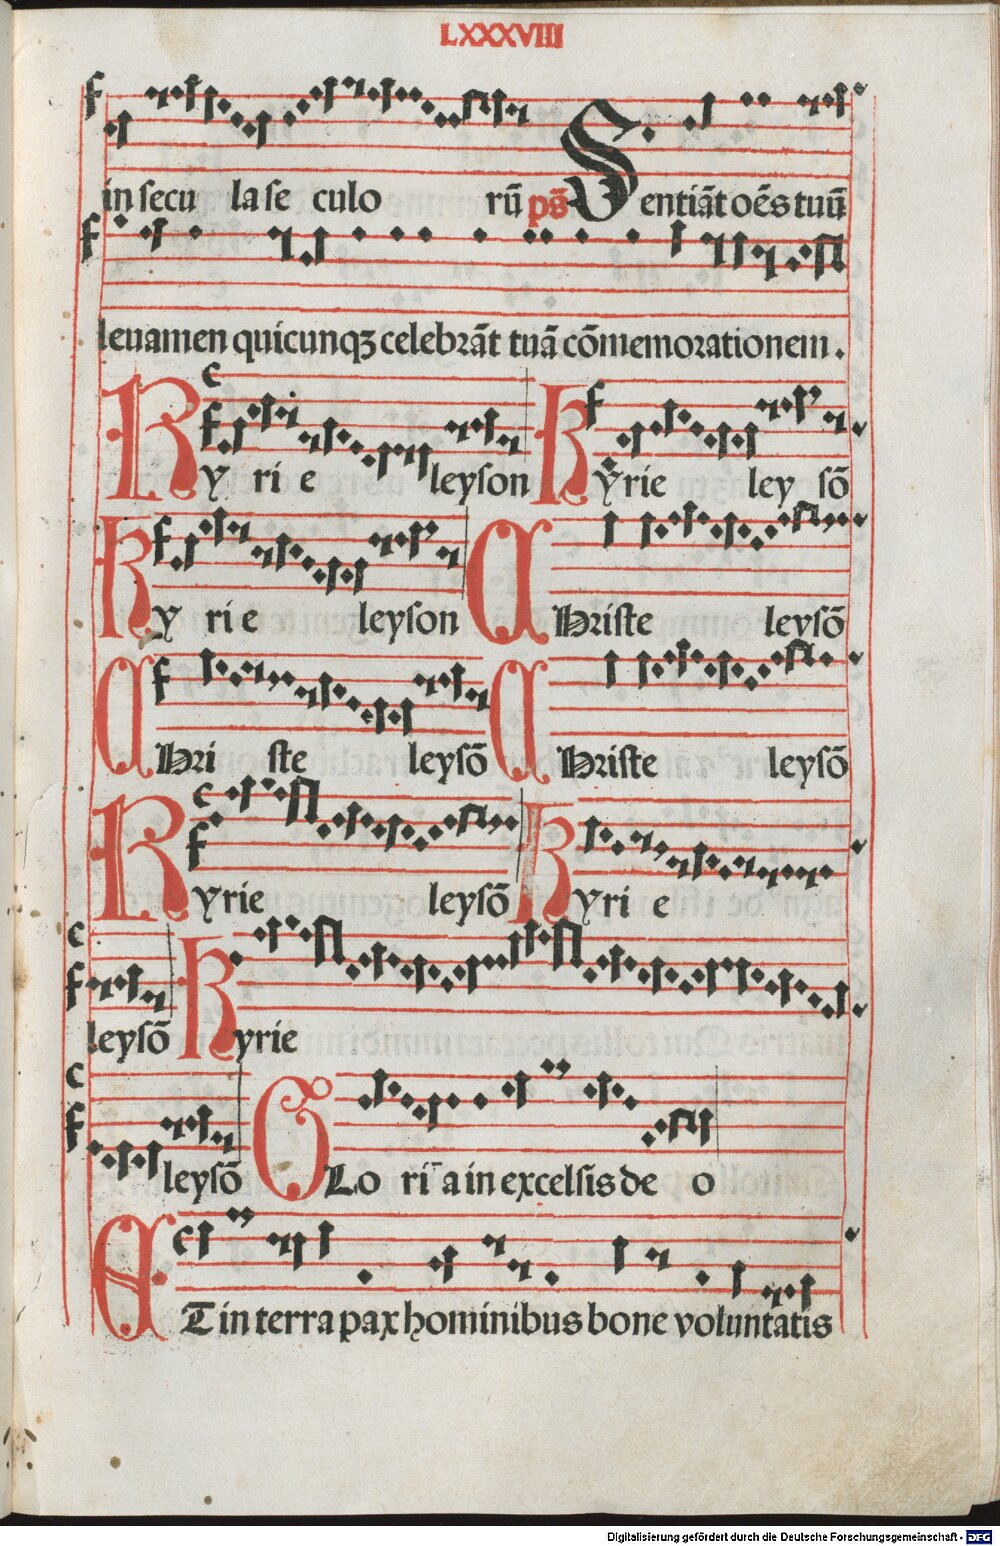 LXXXVIII
in secu la se culo rū ps̄ Sentiāt oēs tuū
leuamen quicunqꝫ celebrāt tuā cōmemorationem.
Kyri e leyson Kyrie ley sō
Ky ri e leyson Christe leysō
Chri ste leysō Christe leysō
Kyrie leysō Kyri e
leysō Kyrie
leysō Glo ri a in excelsis de o
Et in terra pax hominibus bone voluntatis
Digitalisierung gefördert durch die Deutsche Forschungsgemeinschaft - DFG